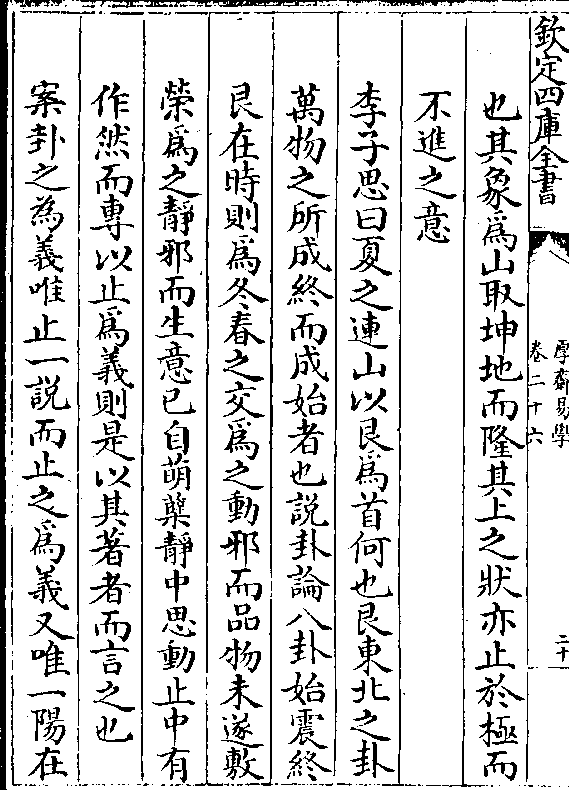 欽定四庫全書
厚齋易學
卷二十六
二十
也其象爲山取坤地而隆其上之狀亦止於極而
不進之意
李子思曰夏之連山以艮爲首何也艮東北之卦
萬物之所成終而成始者也説卦論八卦始震終
艮在時則爲冬春之交爲之動邪而品物未遂敷
榮爲之靜邪而生意已自萌蘖靜中思動止中有
作然而專以止爲義則是以其著者而言之也
案卦之為義唯止一説而止之爲義又唯一陽在